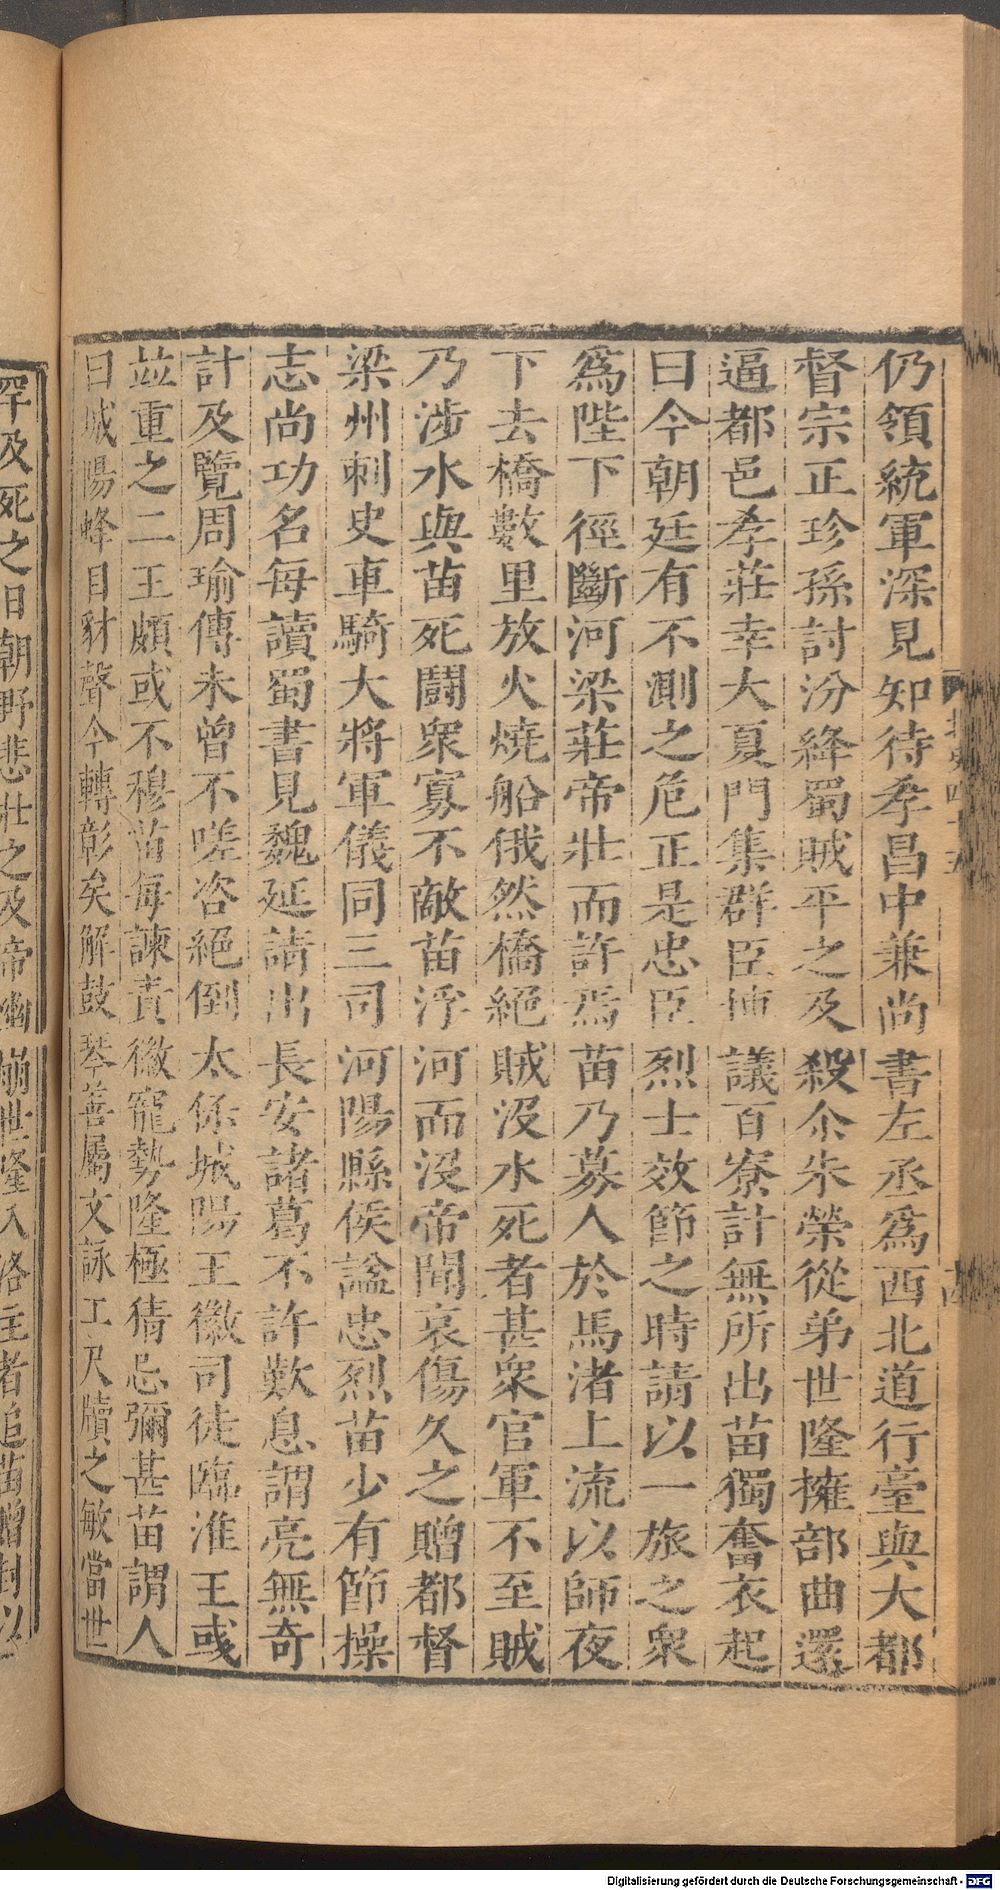 仍領統軍深見知待孝昌中兼尚書左丞爲西北道行臺與大都
督宗正珍孫討汾絳蜀賊平之及殺尒朱榮從弟世隆擁部曲還
逼都邑孝莊幸大夏門集群臣博議百寮計無所出苗獨奮衣起
曰今朝廷有不測之危正是忠臣烈士效節之時請以一旅之衆
爲陛下徑斷河梁莊帝壯而許焉苗乃募人於馬渚上流以師夜
下去橋數里放火燒船俄然橋絕賊沒水死者甚衆官軍不至賊
乃涉水與苗死鬪衆寡不敵苗浮河而沒帝聞哀傷久之贈都督
梁州刺史車騎大將軍儀同三司河陽縣侯諡忠烈苗少有節操
志尚功名每讀蜀書見魏延請出長安諸葛不許歎息謂亮無奇
計及覽周瑜傳未曾不嗟咨絕倒太保城陽王徽司徒臨淮王彧
並重之二王頗或不穆苗每諫責徽寵勢隆極猜忌彌甚苗謂人
曰城陽蜂目豺聲今轉彰矣解鼓琴善屬文詠工尺牘之敏當世
罕及死之日朝野悲壯之及帝幽崩世隆入洛主者追苗贈封以
Digitalisierung gefördert durch die Deutsche Forschungsgemeinschaft - DFG